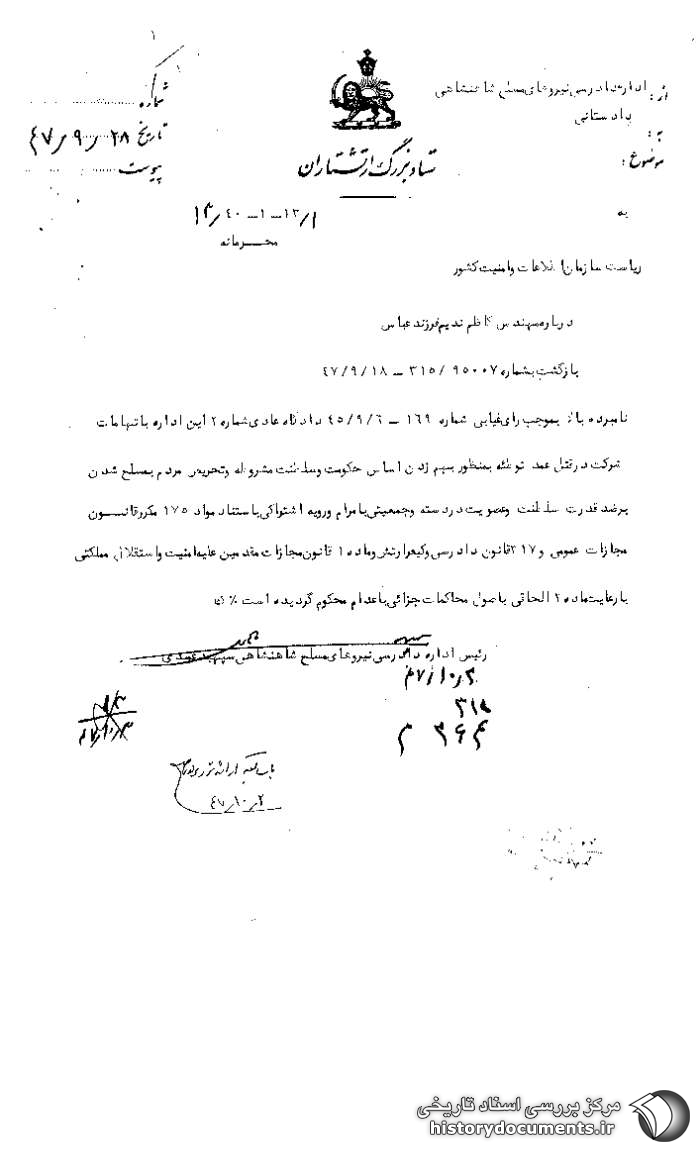 از: اداره دادرسی نیروهای مسلح شاهنشاهی
دادستانی
به:
موضوع:
شماره
تاریخ ۲۸ر۹ر۴۷
پیوست
ستاد بزرگ ارتشتاران
به
۱۳/۱ – ۱ – ۴۰
محرمانه
ریاست سازمان اطلاعات و امنیت کشور
درباره مهندس کاظم ندیم فرزند عباس
بازگشت بشماره ۹۵۰۰۷ /۳۱۵ – ۴۷/۹/۱۸
نامبرده بالا بموجب رای غیابی شماره ۱۶۹ – ۴۵/۹/۶ دادگاه عادی شماره ۲ این اداره باتهامات
شرکت در قتل عمد توطئه بمنظور بهم زدن اساس حکومت و سلطنت مشروطه و تحریص مردم بمسلح شدن
برضد قدرت سلطنت و عضویت در دسته و جمعیتی با مرام و رویه اشتراکی باستناد مواد ۱۷۵ مکرر قانون
مجازات عمومی و ۳۱۷ قانون دادرسی و کیفر ارتش و ماده ۱ قانون مجازات مقدمین علیه امنیت و استقلال مملکتی
با رعایت ماده ۲ الحاقی باصول محاکمات جزائی باعدام محکوم گردیده است ٪
رئیس اداره دادرسی نیروهای مسلح شاهنشاهی سپهبد
۴۷/۱۰/۲
۳۱۵
۴۷ر۱۰ر۲
مرکز بررسی اسناد تاریخی
historydocuments.ir